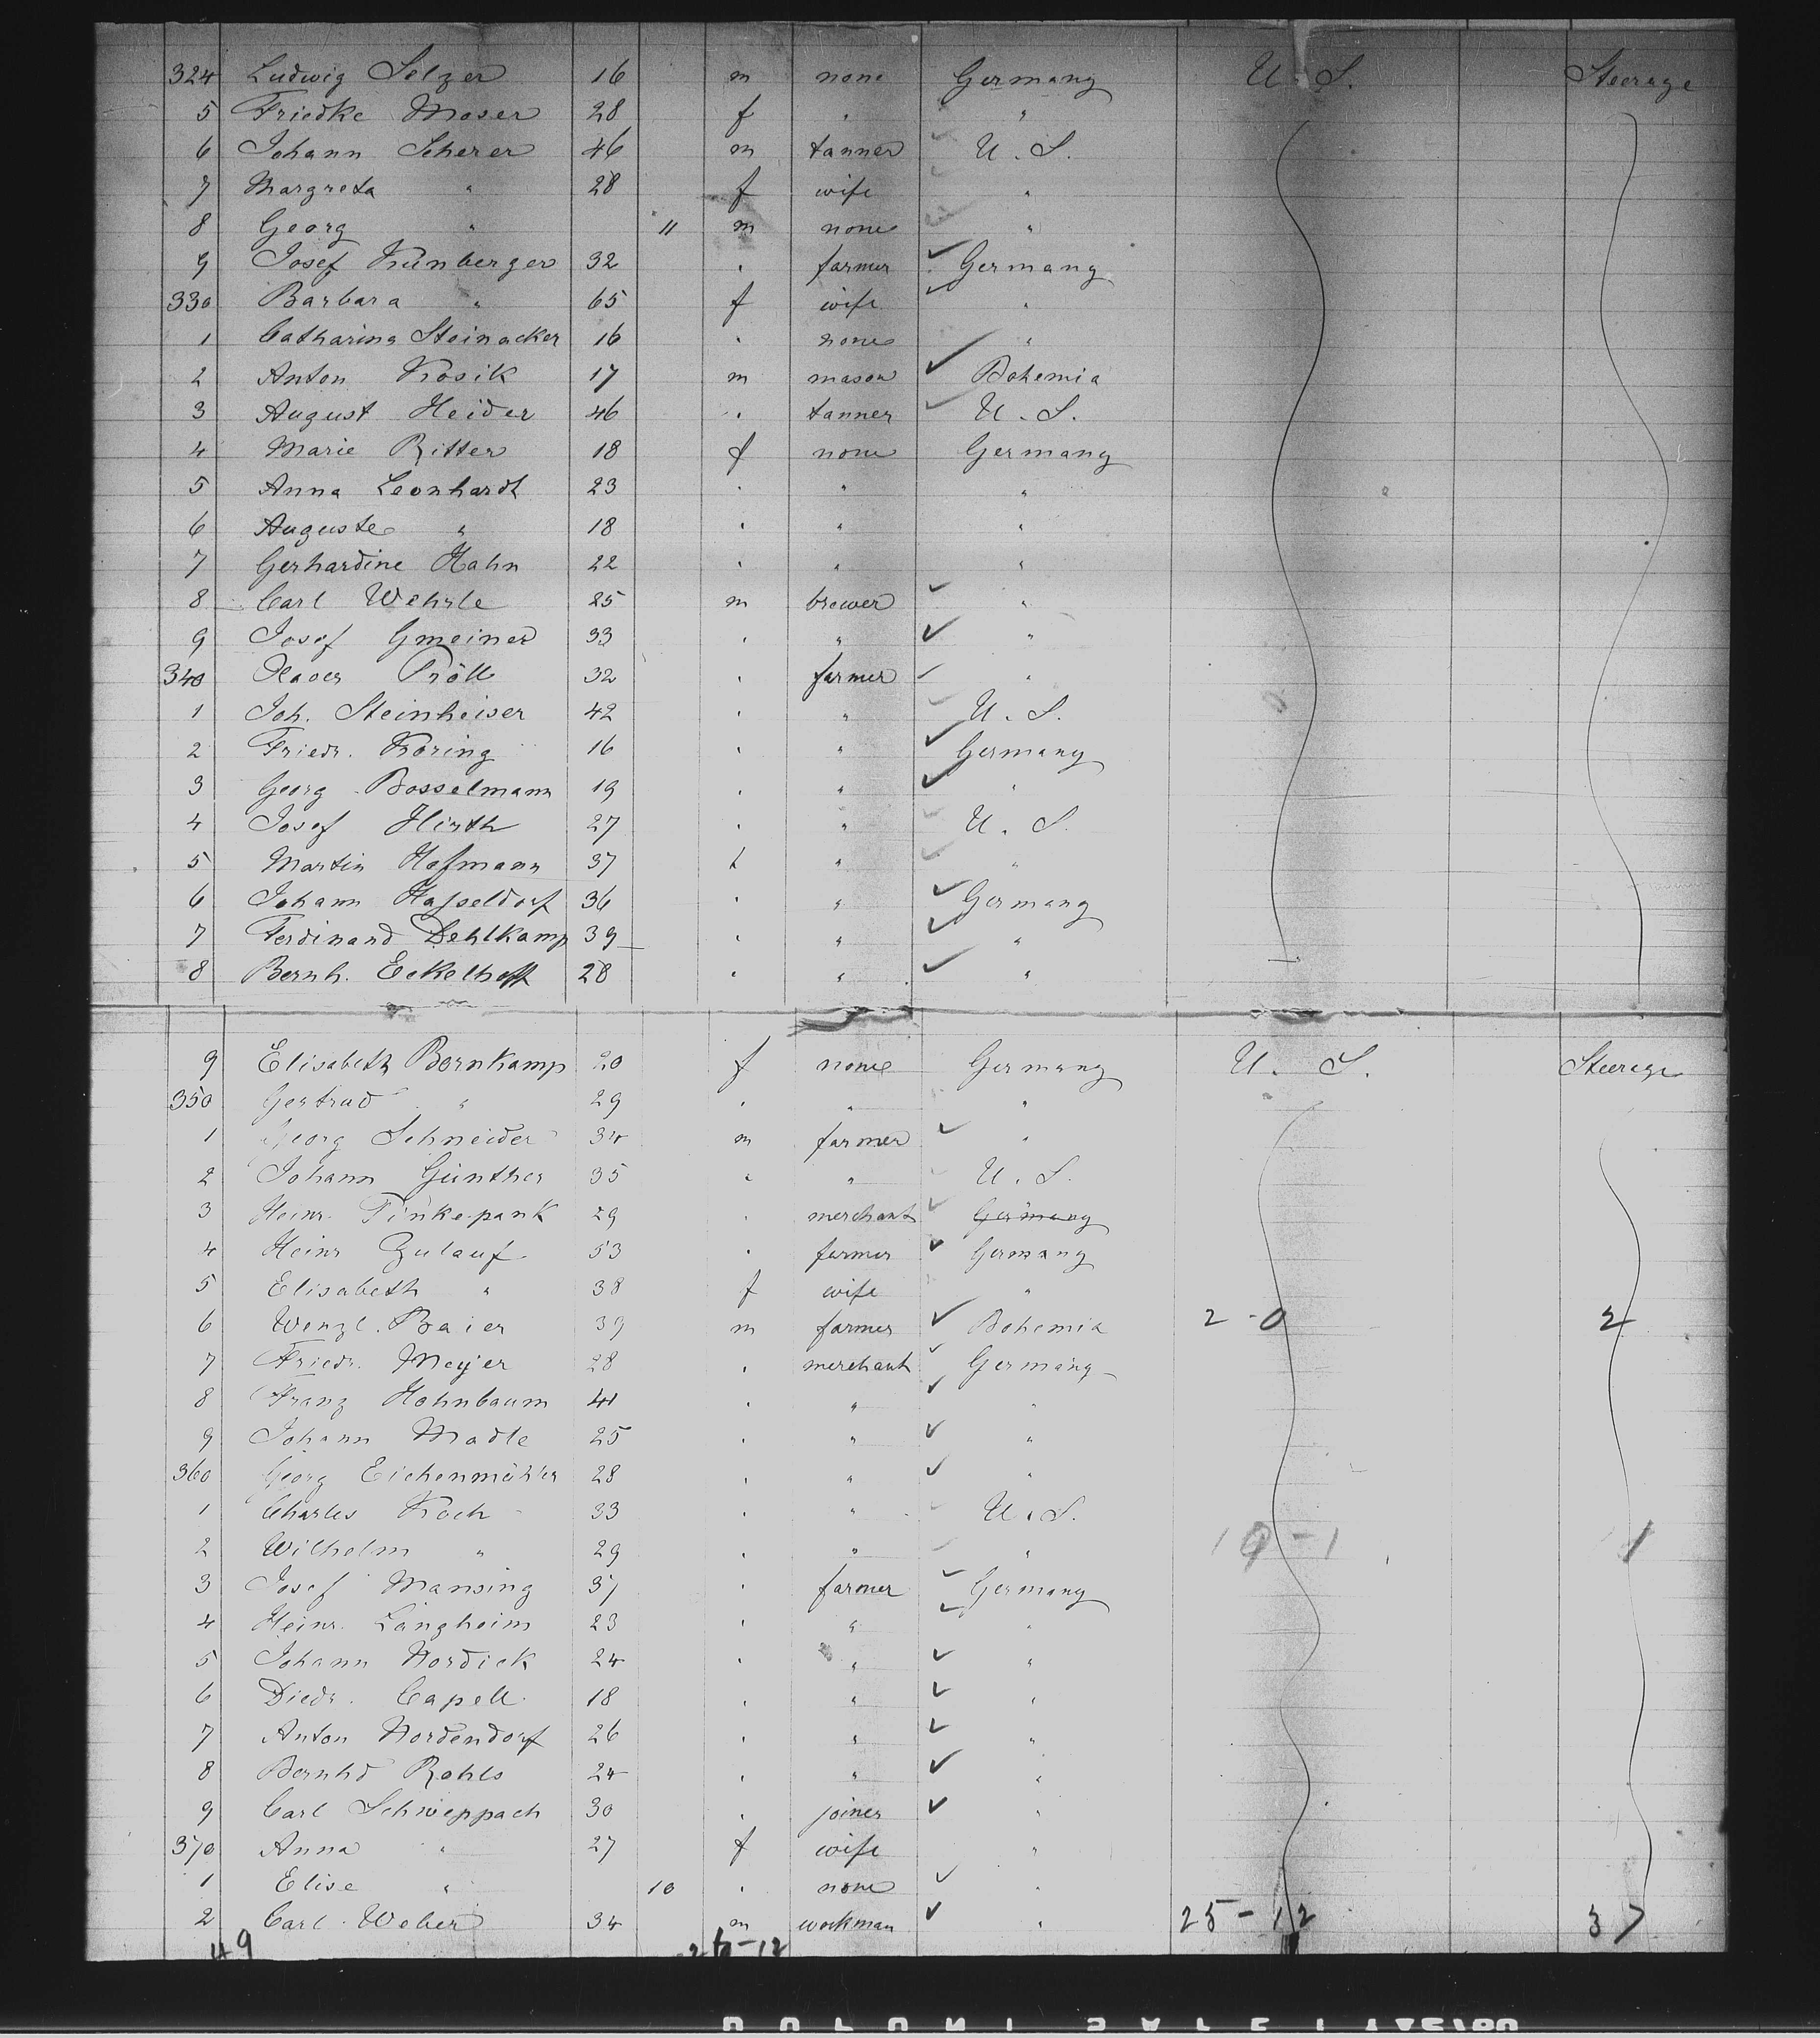 324 Ludwig Selzer 16 m none Germany U. S. Steerage
5 Friedke Moser 28 f " "
6 Johann Scherer 46 m tanner U. S.
7 Margreta " 28 f wife "
8 Georg " 11 m none "
9 Josef Künberger 32 " farmer Germany
330 Barbara " 65 f wife "
1 Catharina Steinacker 16 " none "
2 Anton Kosik 17 m mason Bohemia
3 August Heider 46 " tanner U. S.
4 Marie Ritter 18 f none Germany
5 Anna Leonhardt 23 " " "
6 Auguste " 18 " " "
7 Gerhardine Hahn 22 " " "
8 Carl Wehrle 25 m brewer "
9 Josef Gmeiner 33 " " "
340 Xaver Pröll 32 " farmer "
1 Joh. Steinheiser 42 " " U. S.
2 Friedr. Koring 16 " " Germany
3 Georg Bosselmann 19 " " "
4 Josef Hirth 27 " " U. S.
5 Martin Hofmann 37 " "
6 Johann Hasseldorf 36 " " Germany
7 Ferdinand Dehlkamp 39 " " "
8 Bernh. Eckelhoff 28 " " "
9 Elisabeth Bornkamp 20 f none Germany U. S. Steerage
350 Gertrud " 29 " " "
1 Georg Schneider 34 m farmer "
2 Johann Günther 35 " " U. S.
3 Heinr. Finkepank 29 " merchant Germany
4 Heinr Zulauf 53 " farmer Germany
5 Elisabeth " 38 f wife "
6 Wenzl. Baier 39 m farmer Bohemia 2-0 2
7 Friedr. Meyer 28 " merchant Germany
8 Franz Hohnbaum 41 " " "
9 Johann Madle 25 " " "
360 Georg Eichenmüller 28 " " "
1 Charles Koch 33 " " U. S.
2 Wilhelm " 29 " " " 19-1 1
3 Josef Mansing 37 " farmer Germany
4 Heinr. Langheim 23 " " "
5 Johann Nordick 24 " " "
6 Diedr. Capell 18 " " "
7 Anton Nordendorf 26 " " "
8 Bernhd Rohls 24 " " "
9 Carl Schweppach 30 " joiner "
370 Anna " 27 f wife "
1 Elise " 10 " none "
2 Carl Weber 34 m workman " 25-12 37
49 26-12